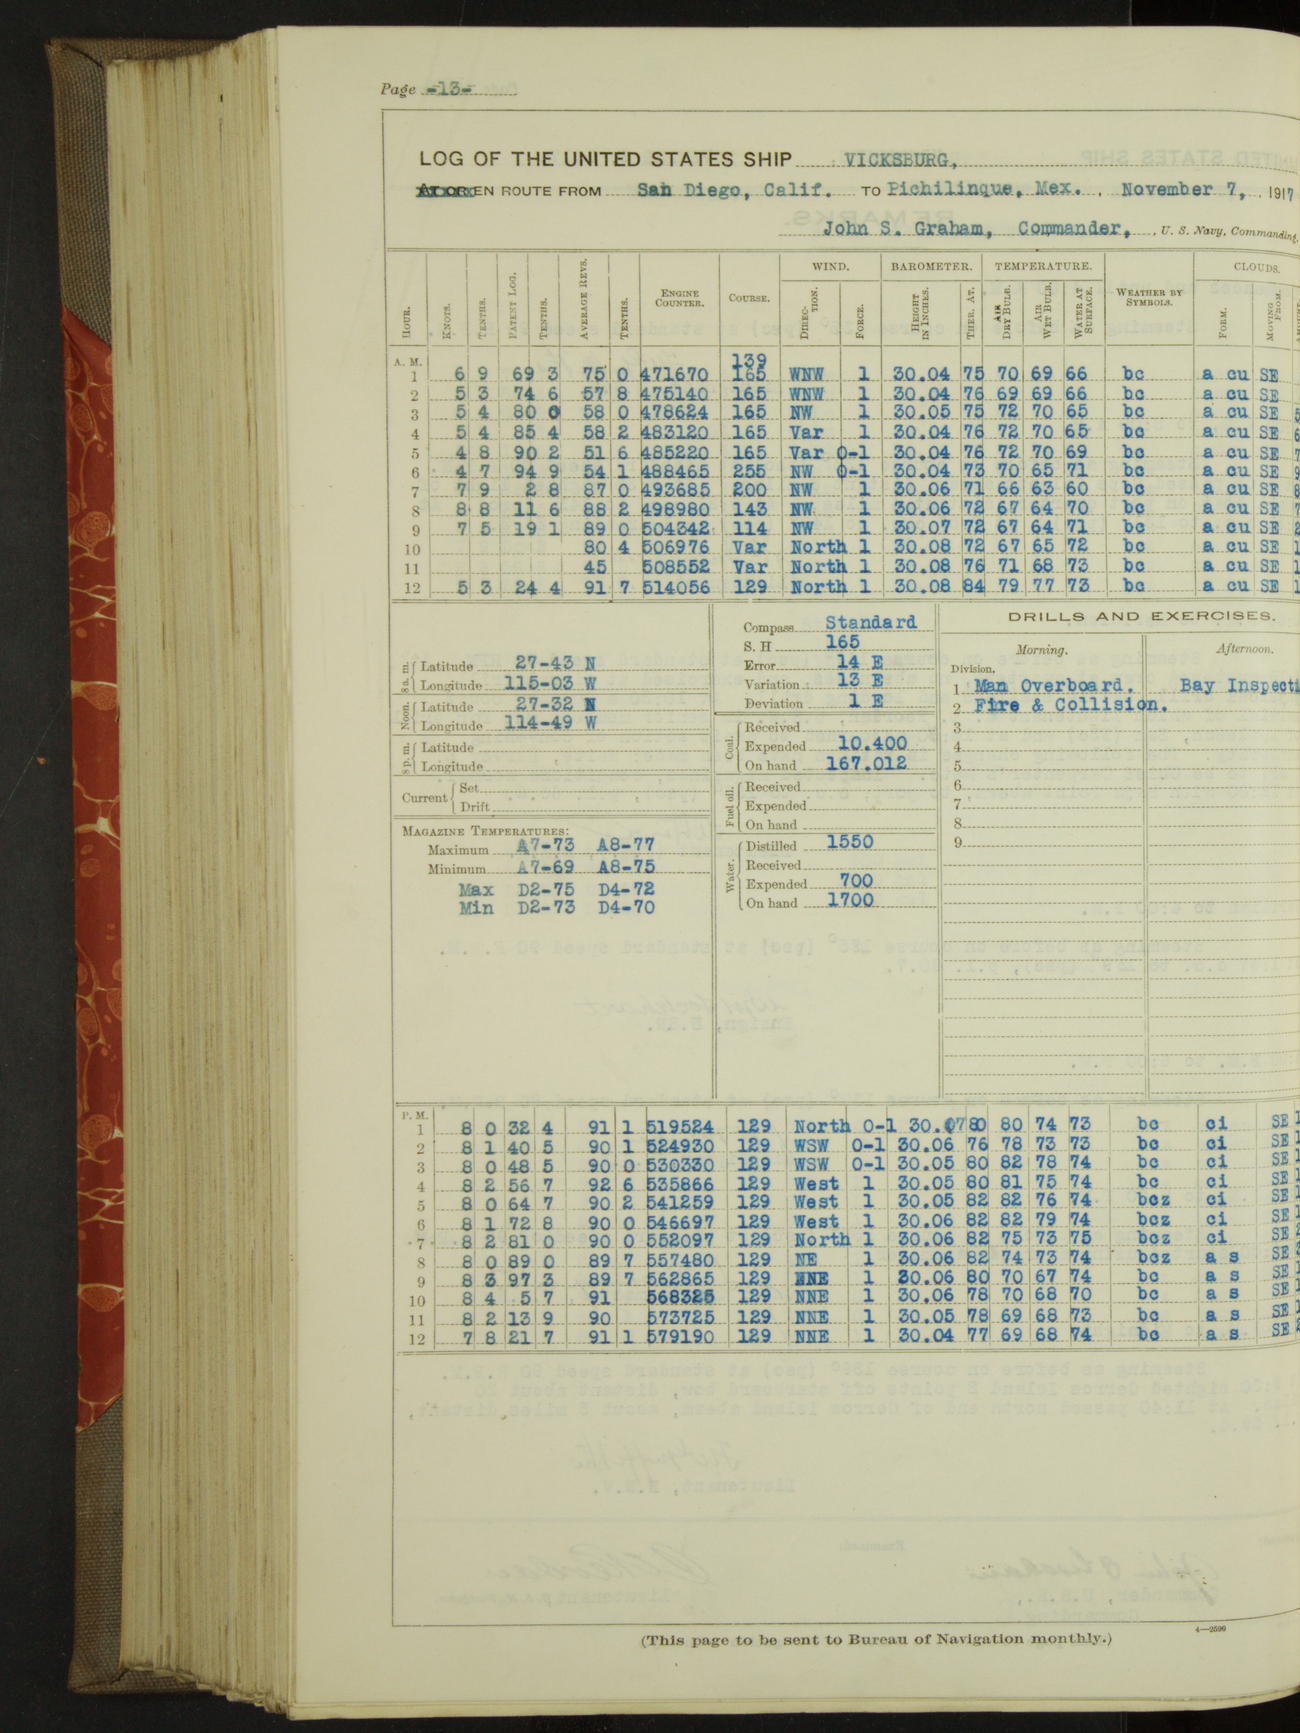 Page -13-
LOG OF THE UNITED STATES SHIP VICKSBURG,
EN ROUTE FROM San Diego, Calif. TO Pichilinque, Mex. November 7, 1917
John S. Graham, Commander, U. S. Navy, Commanding,
WIND. BAROMETER. TEMPERATURE. CLOUDS.
HOUR. KNOTS. TENTHS. PATENT LOG. TENTHS. AVERAGE REVS. TENTHS. ENGINE COUNTER. COURSE. DIRECTION. FORCE. HEIGHT IN INCHES. THER. AT. AIR DRY BULB. AIR WET BULB. WATER AT SURFACE. WEATHER BY SYMBOLS. FORM. MOVING FROM.
A. M. 139
1 6 9 69 3 75 0 471670 165 WNW 1 30.04 75 70 69 66 bc a cu SE
2 5 3 74 6 57 8 475140 165 WNW 1 30.04 76 69 69 66 bc a cu SE
3 5 4 80 0 58 0 478624 165 NW 1 30.05 75 72 70 65 bc a cu SE 5
4 5 4 85 4 58 2 483120 165 Var 1 30.04 76 72 70 65 bc a cu SE 6
5 4 8 90 2 51 6 485220 165 Var 0-1 30.04 76 72 70 69 bc a cu SE 7
6 4 7 94 9 54 1 488465 255 NW 0-1 30.04 73 70 65 71 bc a cu SE 9
7 7 9 2 8 87 0 493685 200 NW 1 30.06 71 66 63 60 bc a cu SE 8
8 8 8 11 6 88 2 498980 143 NW 1 30.06 72 67 64 70 bc a cu SE 7
9 7 5 19 1 89 0 504342 114 NW 1 30.07 72 67 64 71 bc a cu SE 2
10 80 4 506976 Var North 1 30.08 72 67 65 72 bc a cu SE 1
11 45 508552 Var North 1 30.08 76 71 68 73 bc a cu SE 1
12 5 3 24 4 91 7 514056 129 North 1 30.08 84 79 77 73 bc a cu SE 1
8 a. m. Latitude 27-43 N
Longitude 115-03 W
Noon. Latitude 27-32 N
Longitude 114-49 W
8 p. m. Latitude
Longitude
Current Set
Drift
MAGAZINE TEMPERATURES:
Maximum A7-73 A8-77
Minimum A7-69 A8-75
Max D2-75 D4-72
Min D2-73 D4-70
Compass Standard
S. H 165
Error 14 E
Variation 13 E
Deviation 1 E
Coal. Received
Expended 10.400
On hand 167.012
Fuel oil. Received
Expended
On hand
Water. Distilled 1550
Received
Expended 700
On hand 1700
DRILLS AND EXERCISES.
Morning. Afternoon.
Division.
1 Man Overboard. Bay Inspecti
2 Fire & Collision.
3
4
5
6
7
8
9
P. M.
1 8 0 32 4 91 1 519524 129 North 0-1 30.07 80 80 74 73 bc ci SE 1
2 8 1 40 5 90 1 524930 129 WSW 0-1 30.06 76 78 73 73 bc ci SE 1
3 8 0 48 5 90 0 530330 129 WSW 0-1 30.05 80 82 78 74 bc ci SE 1
4 8 2 56 7 92 6 535866 129 West 1 30.05 80 81 75 74 bc ci SE 1
5 8 0 64 7 90 2 541259 129 West 1 30.05 82 82 76 74 bcz ci SE 1
6 8 1 72 8 90 0 546697 129 West 1 30.06 82 82 79 74 bcz ci SE 1
7 8 2 81 0 90 0 552097 129 North 1 30.06 82 75 73 75 bcz ci SE 2
8 8 0 89 0 89 7 557480 129 NE 1 30.06 82 74 73 74 bcz a s SE 3
9 8 3 97 3 89 7 562865 129 NNE 1 30.06 80 70 67 74 bc a s SE 1
10 8 4 5 7 91 568325 129 NNE 1 30.06 78 70 68 70 bc a s SE 1
11 8 2 13 9 90 573725 129 NNE 1 30.05 78 69 68 73 bc a s SE 1
12 7 8 21 7 91 1 579190 129 NNE 1 30.04 77 69 68 74 bc a s SE 2
(This page to be sent to Bureau of Navigation monthly.)
4—2599